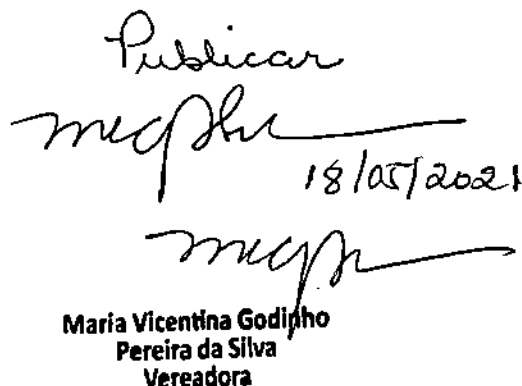 Publicar
18/05/2021
Maria Vicentina Godinho
Pereira da Silva
Vereadora